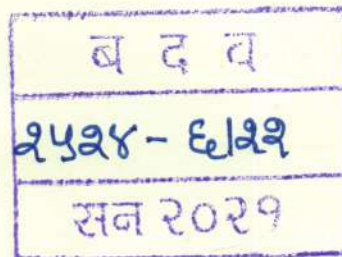 ब द व
२५२४ - ६/२२
सन २०२१